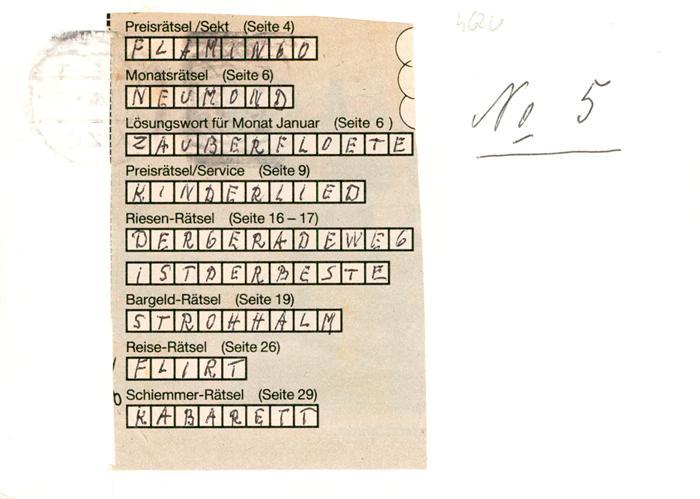 Preisrätsel/Sekt (Seite 4)
FLAMINGO
Monatsrätsel (Seite 6)
NEUMOND
Lösungswort für Monat Januar (Seite 6)
ZAUBERFLOETE
Preisrätsel/Service (Seite 9)
KINDERLIED
Riesen-Rätsel (Seite 16–17)
DERGERADEWEG
ISTDERBESTE
Bargeld-Rätsel (Seite 19)
STROHHALM
Reise-Rätsel (Seite 26)
FLIRT
Schlemmer-Rätsel (Seite 29)
KABARETT
No 5